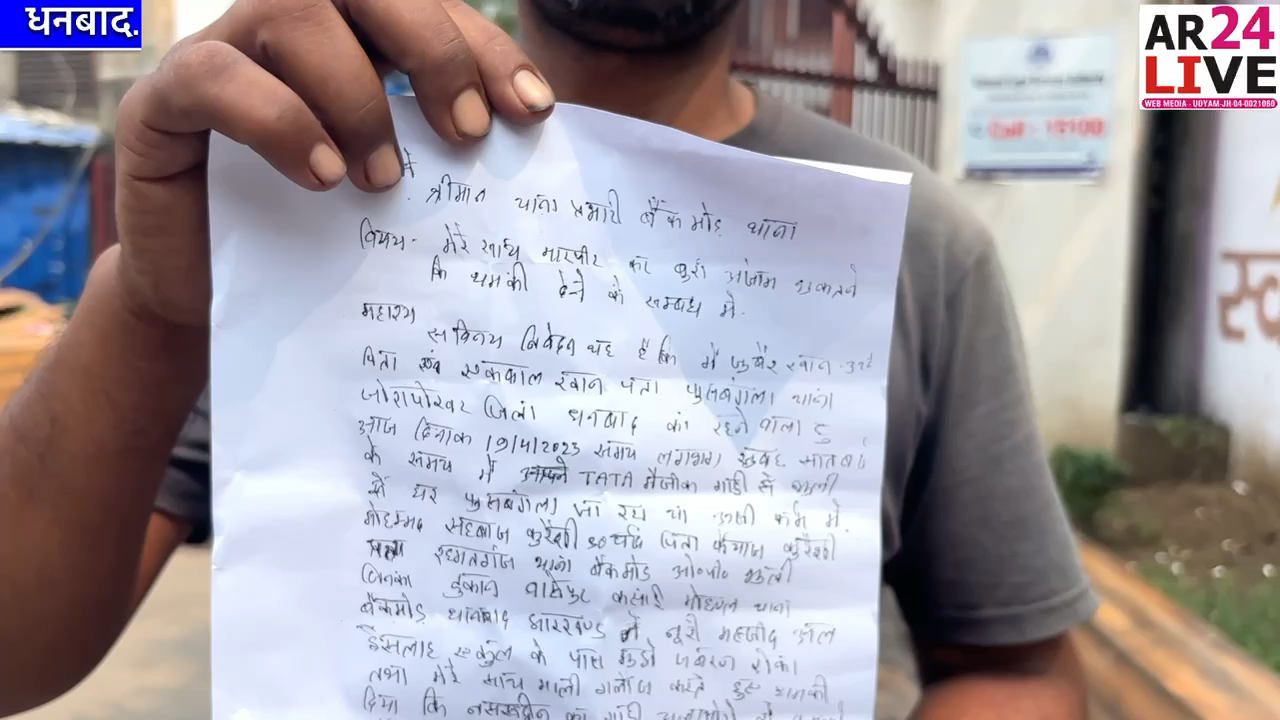 धनबाद.
AR24
LIVE
WEB MEDIA - UDYAM-JH-04-0021060
Call - 15100
स्व
में
श्रीमान थाना प्रभारी बैंक मोड़ थाना
विषय- मेरे साथ मारपीट कर बुरा अंजाम भुकतने
कि धमकी देने के सम्बंध में.
महाशय
सविनय निवेदन यह है कि मैं जुबैर खान
पिता स्व एकबाल खान पता फुसबंगला थाना
जोरापोखर जिला धनबाद का रहने वाला हु
आज दिनांक 19/4/2023 समय लगभग सुबह सात बजे
के समय में अपने TATA मैजीक गाड़ी से भुली
से घर फुसबंगला जा रहा था उसी क्रम में.
मोहम्मद सहबाज कुरैशी 30 वर्ष पिता फैयाज कुरैशी
पता रहमतगंज थाना बैंकमोड ओ०पी० भुली
जिनका दुकान वासेपुर कसाई मोहल्ला थाना
बैंकमोड़ धानबाद झारखण्ड में नूरी महजीद अल
ईसलाह स्कुल के पास मुझे जबरन रोका
तथा मेरे साथ गाली गलौज करते हुए धमकी
दिया कि नसरूद्दीन का गाड़ी